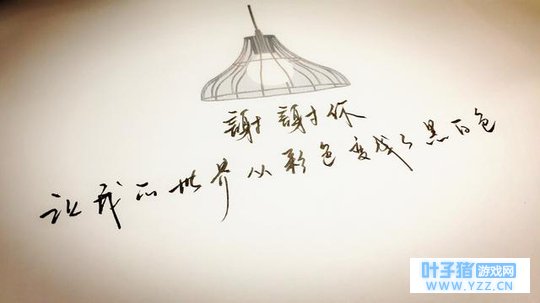 謝謝你
让我的世界从彩色变成了黑白色
叶子猪游戏网
WWW.YZZ.CN